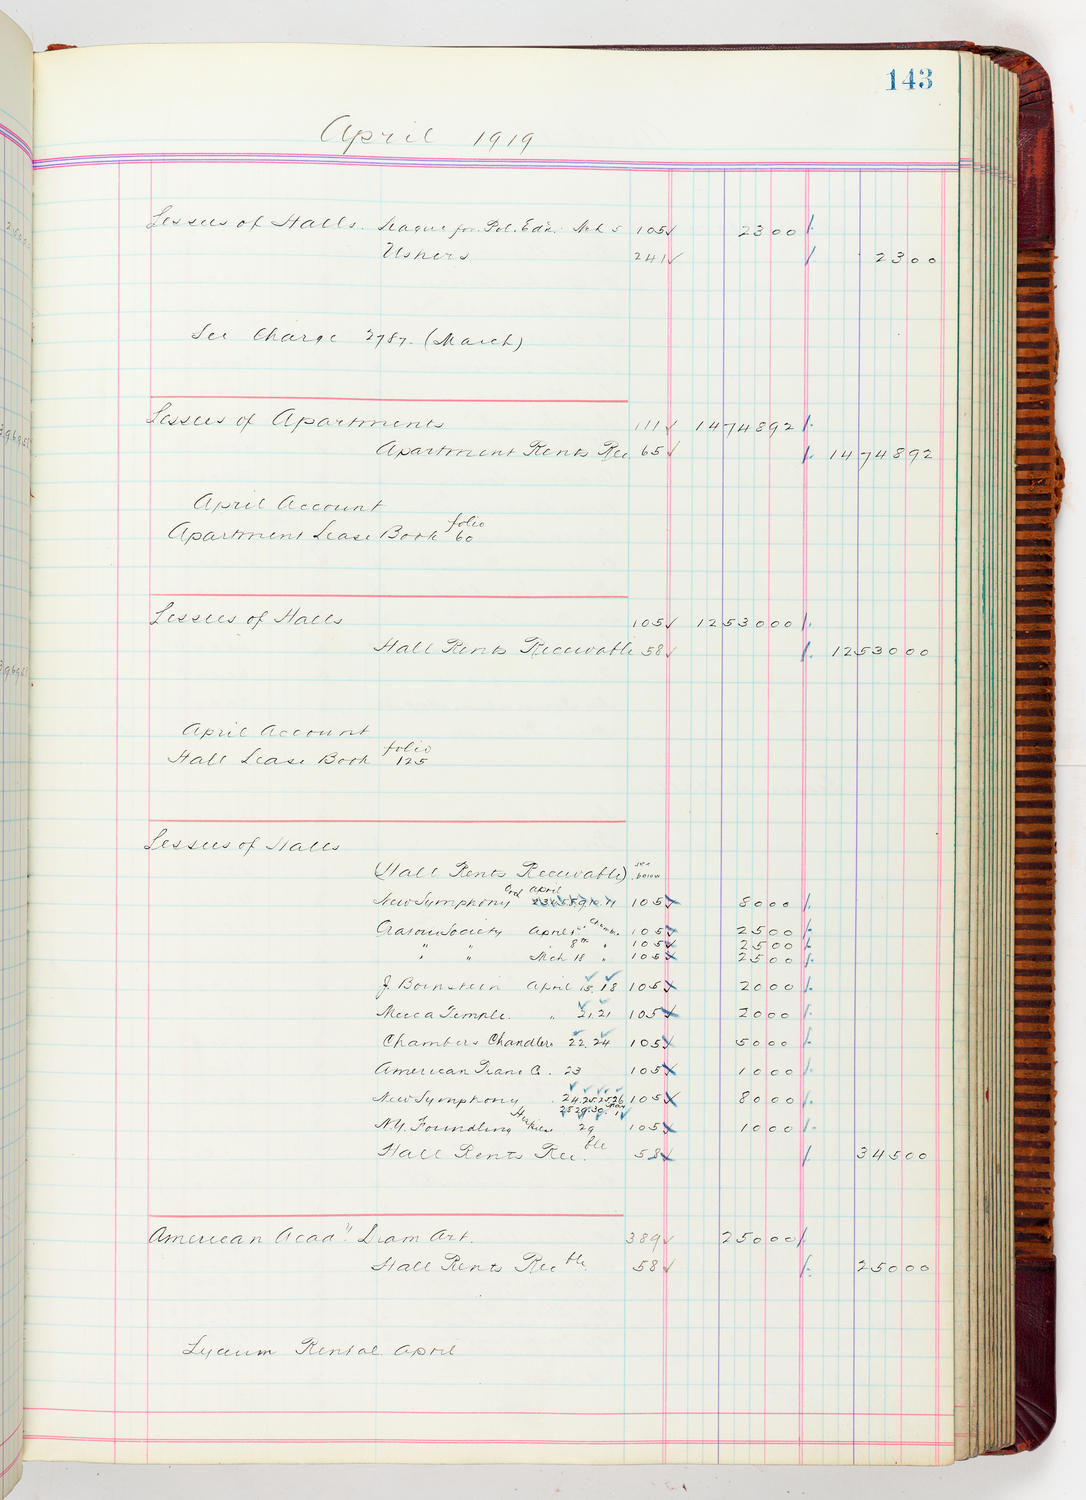 143
April 1919
Lessees of Halls. League for Pol. Edn. Mch 5 105 2300
Ushers 241 2300
See Charge 2787. (March)
Lessees of Apartments 111 1474892
Apartment Rents Rec 65 1474892
April Account
Apartment Lease Book folio 60
Lessees of Halls 105 1253000
Hall Rents Receivable 58 1253000
April Account
Hall Lease Book folio 125
Lessees of Halls
(Hall Rents Receivable) see below
New Symphony April 105 8000
Society April 105 2500
" " " 8th " 105 2500
" " Mch 18 " 105 2500
J. Bornstein April 15, 18 105 2000
Mecca Temple. " 21, 21 105 2000
Chambers Chandler 22, 24 105 5000
American Trans C. 23 105 1000
New Symphony 24, 25 25 26 105 8000
28 29 30 May 1
N.Y. Foundling 29 105 1000
Hall Rents Rec'ble 58 34500
American Acad" Dram Art. 389 25000
Hall Rents Rec ble 58 25000
Lyceum Rental April